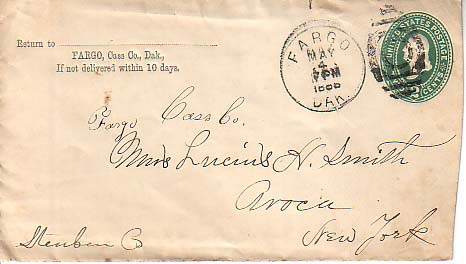 Return to
FARGO, Cass Co., Dak.,
If not delivered within 10 days.
FARGO
MAY
4
PM
1888
DAK.
UNITED STATES POSTAGE
2 CENTS
Cass Co.
Fargo
Mrs Lucius N. Smith
Avoca
New York
Steuben Co